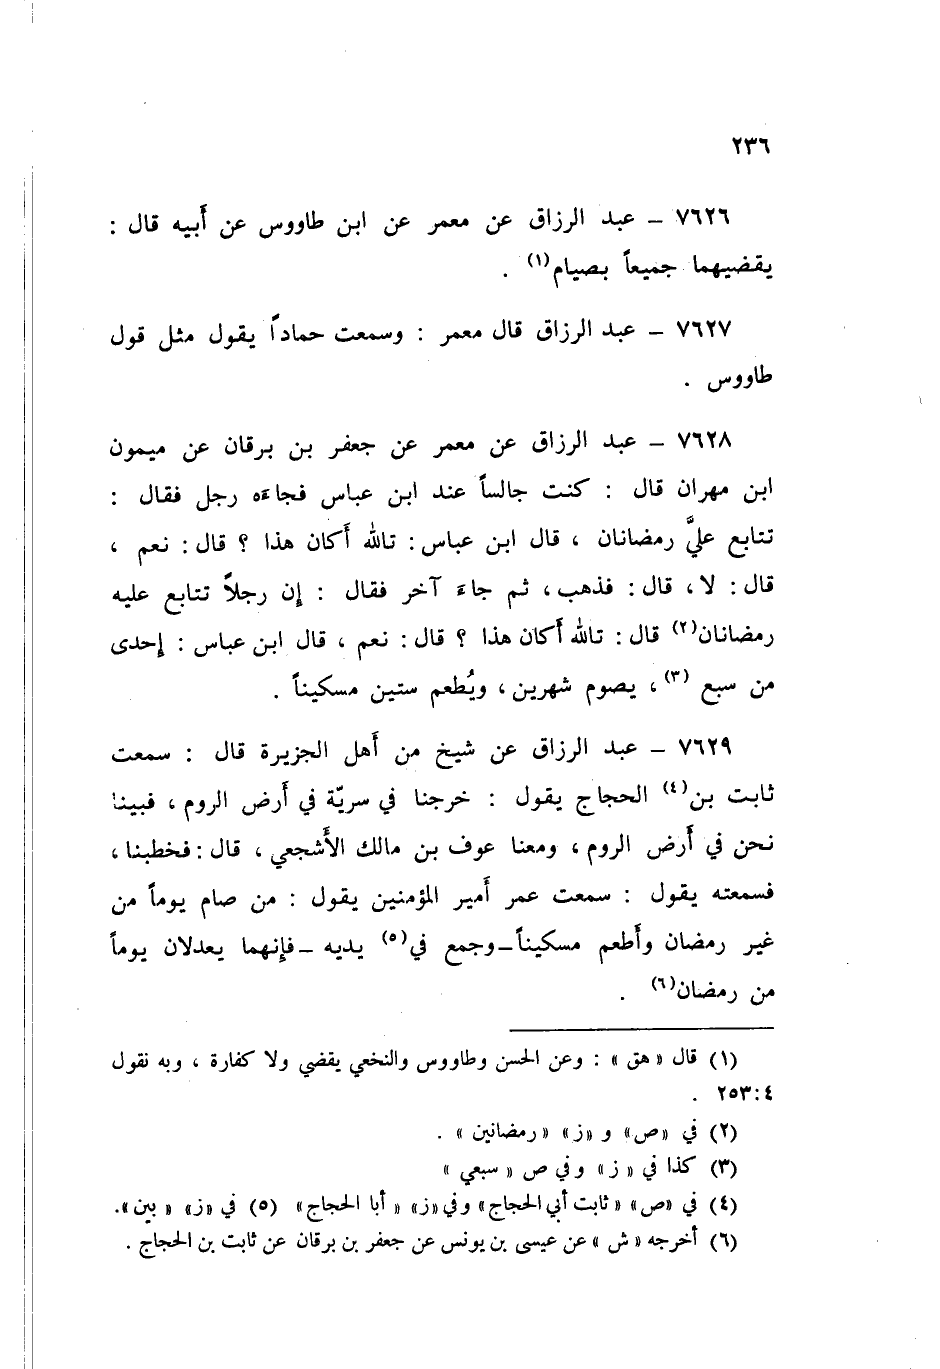 ٢٣٦
٧٦٢٦ ــ عبد الرزاق عن معمر عن ابن طاووس عن أبيه قال :
يقضيهما جميعاً بصيام(١) .
٧٦٢٧ ــ عبد الرزاق قال معمر : وسمعت حماداً يقول مثل قول
طاووس .
٧٦٢٨ ــ عبد الرزاق عن معمر عن جعفر بن برقان عن ميمون
ابن مهران قال : كنت جالساً عند ابن عباس فجاءه رجل فقال :
تتابع عليَّ رمضانان ، قال ابن عباس : تالله أكان هذا ؟ قال : نعم ،
قال : لا ، قال : فذهب ، ثم جاءَ آخر فقال : إن رجلاً تتابع عليه
رمضانان(٢) قال : تالله أكان هذا ؟ قال : نعم ، قال ابن عباس : إحدى
من سبع (٣) ، يصوم شهرين ، ويُطعم ستين مسكيناً .
٧٦٢٩ ــ عبد الرزاق عن شيخ من أهل الجزيرة قال : سمعت
ثابت بن(٤) الحجاج يقول : خرجنا في سريّة في أرض الروم ، فبينا
نحن في أرض الروم ، ومعنا عوف بن مالك الأشجعي ، قال : فخطبنا ،
فسمعته يقول : سمعت عمر أمير المؤمنين يقول : من صام يوماً من
غير رمضان وأطعم مسكيناً ــ وجمع في(٥) يديه ــ فإنهما يعدلان يوماً
من رمضان(٦) .
(١) قال « هق » : وعن الحسن وطاووس والنخعي يقضي ولا كفارة ، وبه نقول
٤ : ٢٥٣ .
(٢) في «ص» و «ز» « رمضانين » .
(٣) كذا في « ز» وفي ص « سبعي »
(٤) في «ص» « ثابت أبي الحجاج» وفي «ز» « أبا الحجاج» (٥) في «ز» « بين ».
(٦) أخرجه « ش » عن عيسى بن يونس عن جعفر بن برقان عن ثابت بن الحجاج .